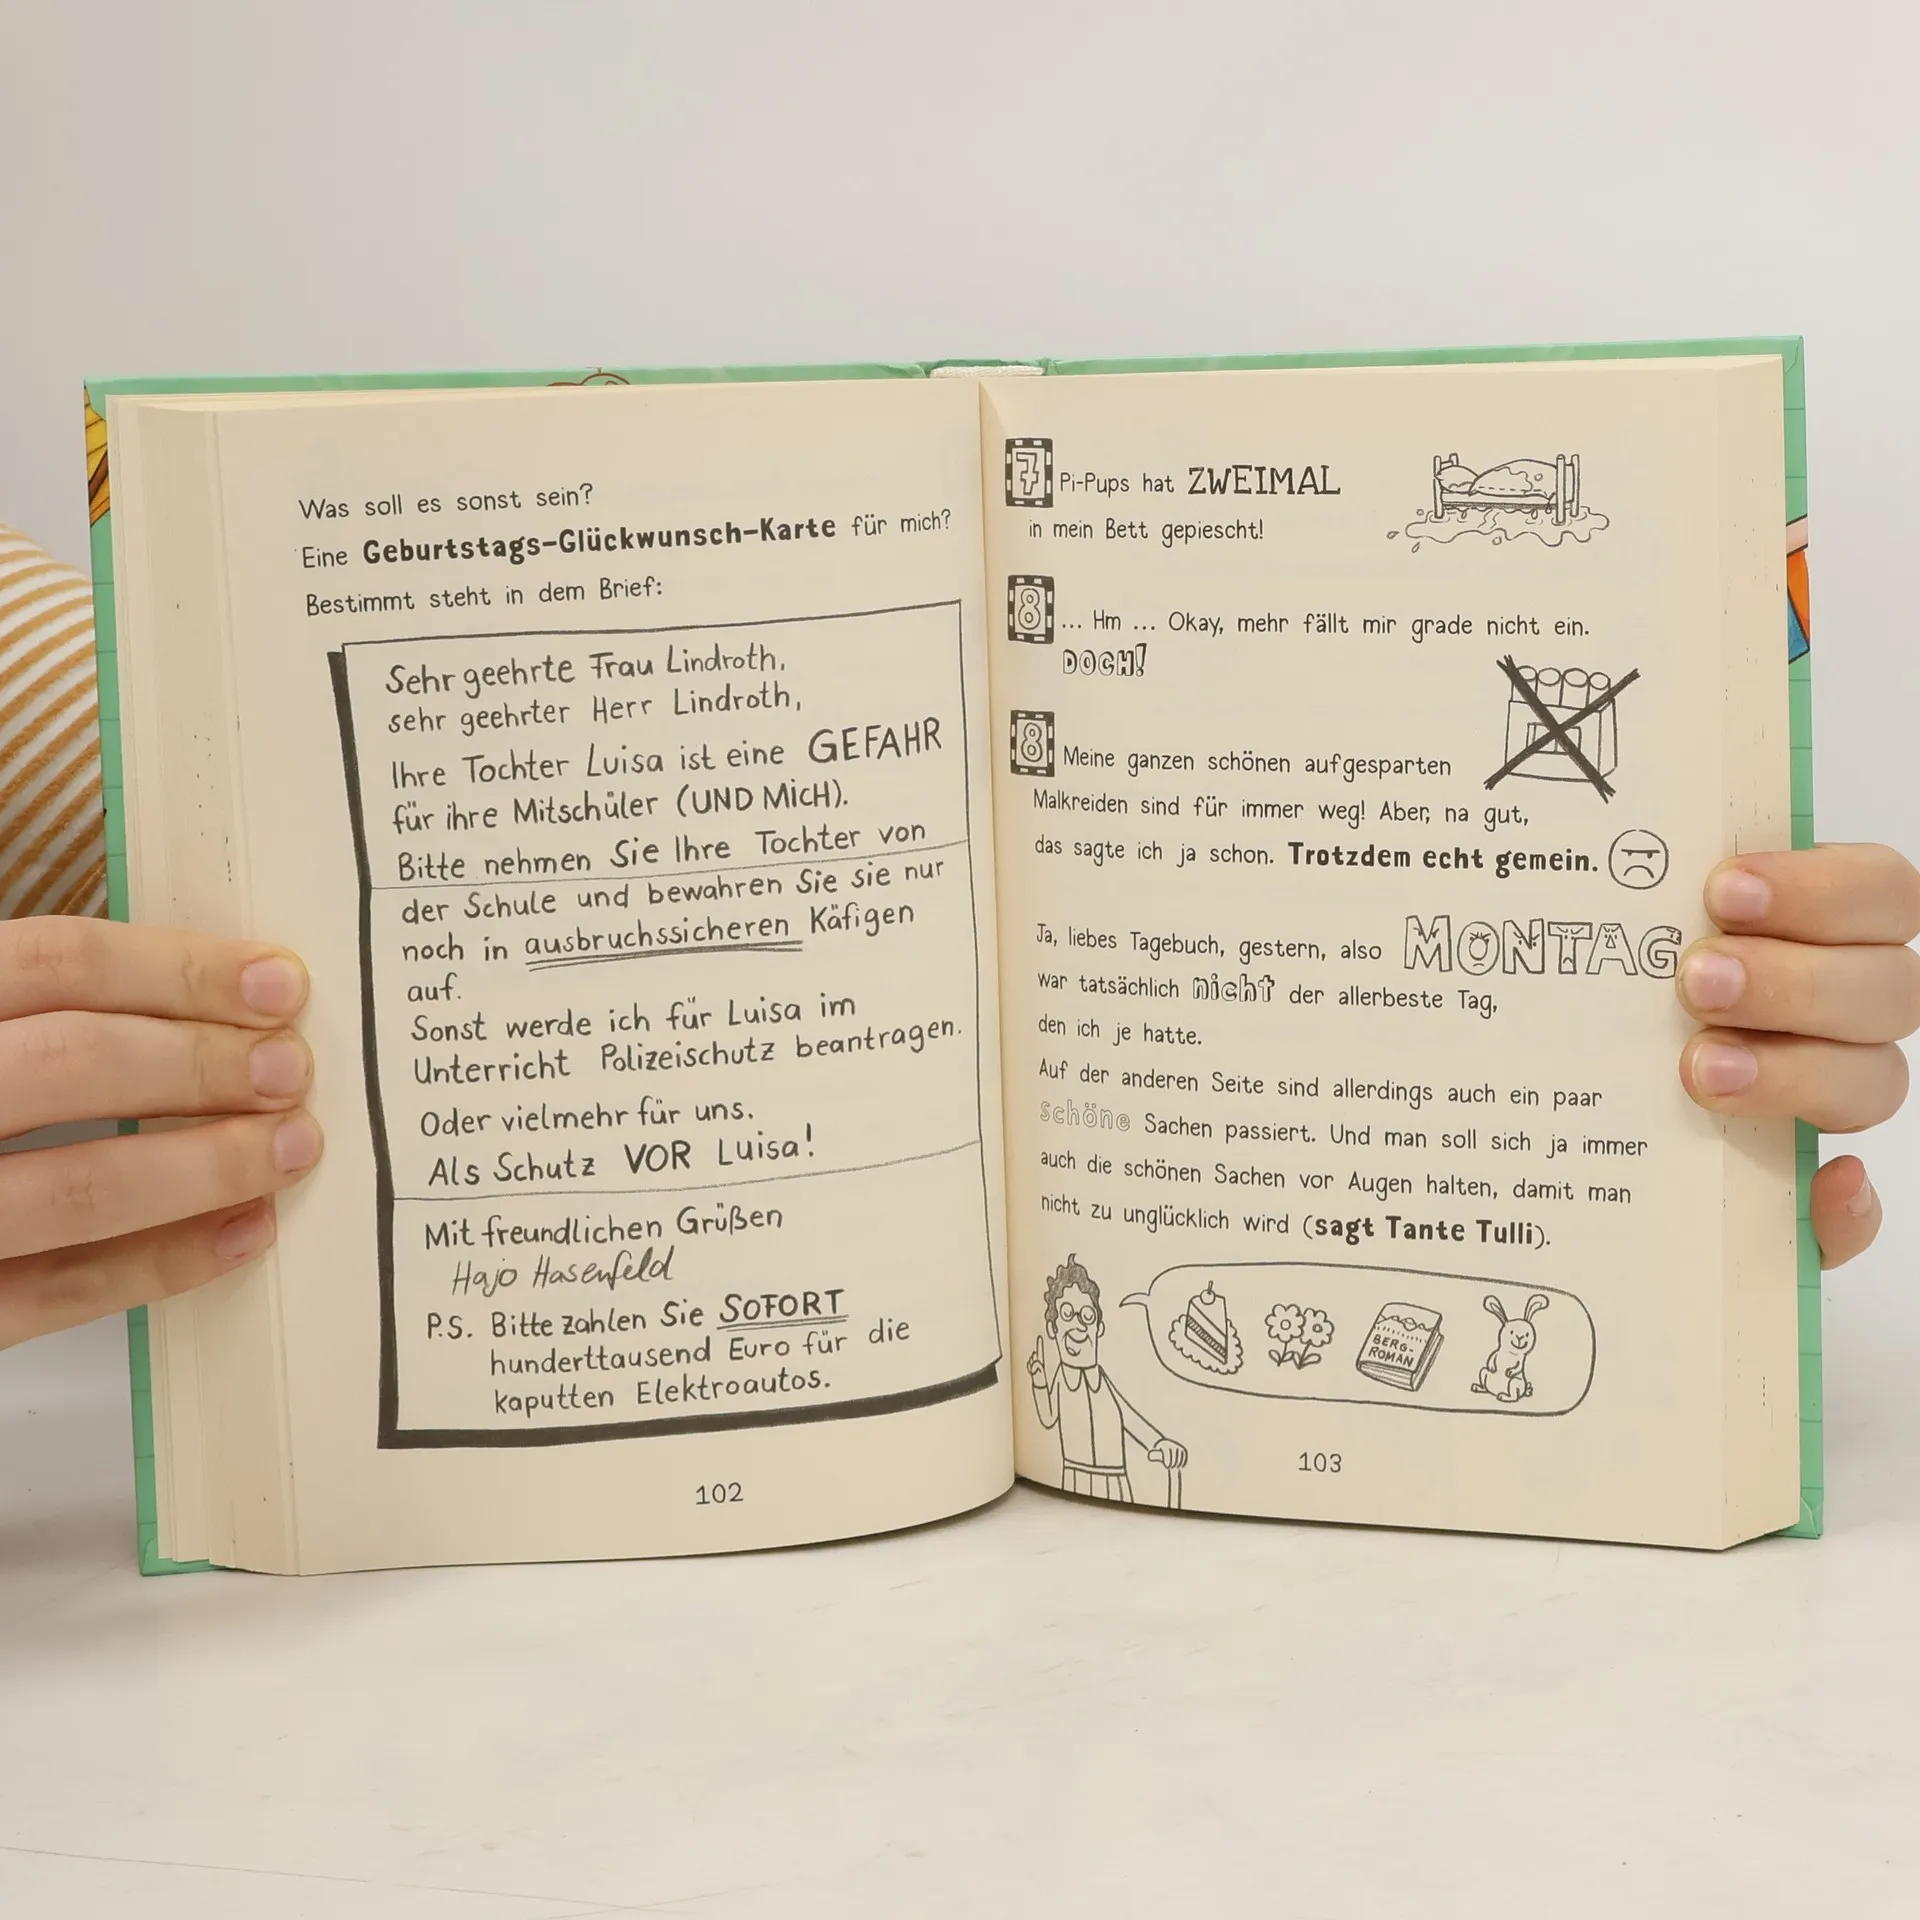 Was soll es sonst sein?
Eine Geburtstags-Glückwunsch-Karte für mich?
Bestimmt steht in dem Brief:
Sehr geehrte Frau Lindroth,
sehr geehrter Herr Lindroth,
Ihre Tochter Luisa ist eine GEFAHR
für ihre Mitschüler (UND MICH).
Bitte nehmen Sie Ihre Tochter von
der Schule und bewahren Sie sie nur
noch in ausbruchssicheren Käfigen
auf.
Sonst werde ich für Luisa im
Unterricht Polizeischutz beantragen.
Oder vielmehr für uns.
Als Schutz VOR Luisa!
Mit freundlichen Grüßen
Hajo Hasenfeld
P.S. Bitte zahlen Sie SOFORT
hunderttausend Euro für die
kaputten Elektroautos.
102
7 Pi-Pups hat ZWEIMAL
in mein Bett gepiescht!
8 ... Hm ... Okay, mehr fällt mir grade nicht ein.
DOCH!
8 Meine ganzen schönen aufgesparten
Malkreiden sind für immer weg! Aber, na gut,
das sagte ich ja schon. Trotzdem echt gemein.
Ja, liebes Tagebuch, gestern, also MONTAG
war tatsächlich nicht der allerbeste Tag,
den ich je hatte.
Auf der anderen Seite sind allerdings auch ein paar
schöne Sachen passiert. Und man soll sich ja immer
auch die schönen Sachen vor Augen halten, damit man
nicht zu unglücklich wird (sagt Tante Tulli).
BERG-
ROMAN
103